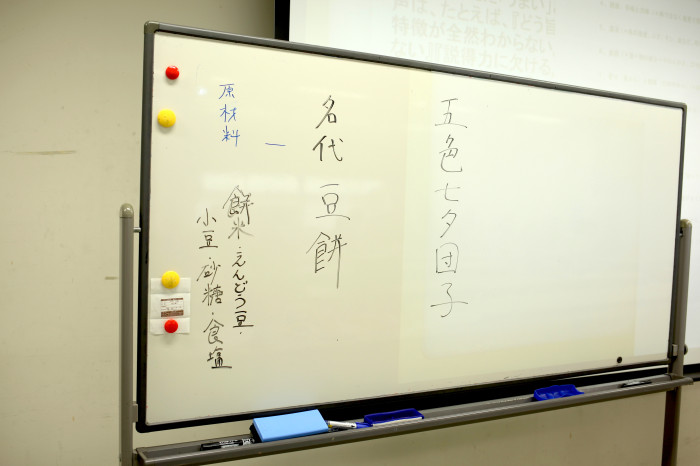 声は、たとえば、『どう
特徴が全然わからない
ない
力に欠ける
五色七夕団子
名代 豆餅
原材料
餅米・えんどう豆・
小豆・砂糖・食塩